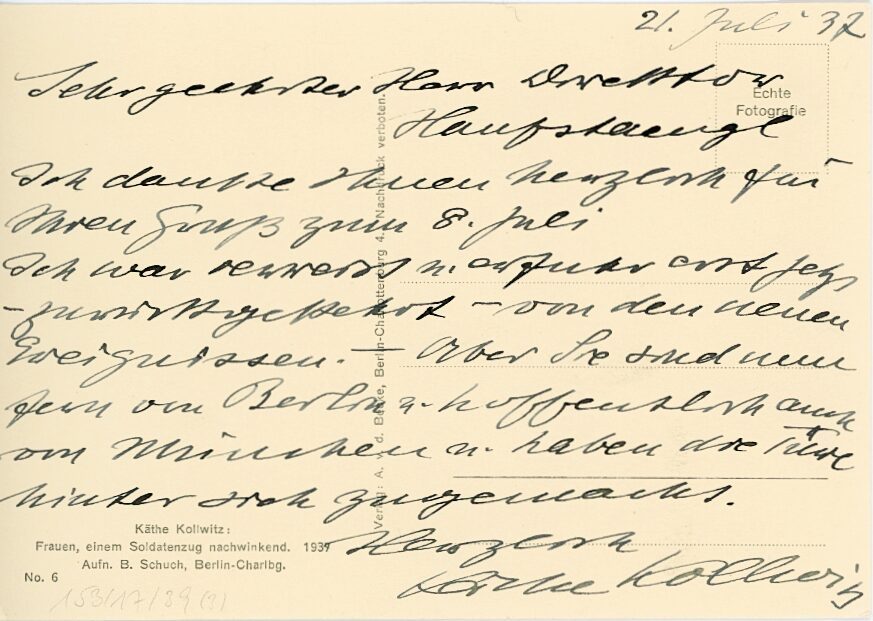 21. Juli 37
Sehr geehrter Herr Direktor
Hanfstaengl
Echte
Fotografie
Ich danke Ihnen herzlich für
Ihren Gruß zum 8. Juli
Ich war verreist u. erfuhr erst jetzt
– zurückgekehrt – von den neuen
Ereignissen. – Aber Sie sind nun
fern von Berlin u. hoffentlich auch
von München u. haben die Türe
hinter sich zugemacht.
Herzlich
Käthe Kollwitz
Verlag: A. v. d. Becke, Berlin-Charlottenburg 4. Nachdruck verboten.
Käthe Kollwitz:
Frauen, einem Soldatenzug nachwinkend. 1937
Aufn. B. Schuch, Berlin-Charlbg.
No. 6
153/17/39 (3)